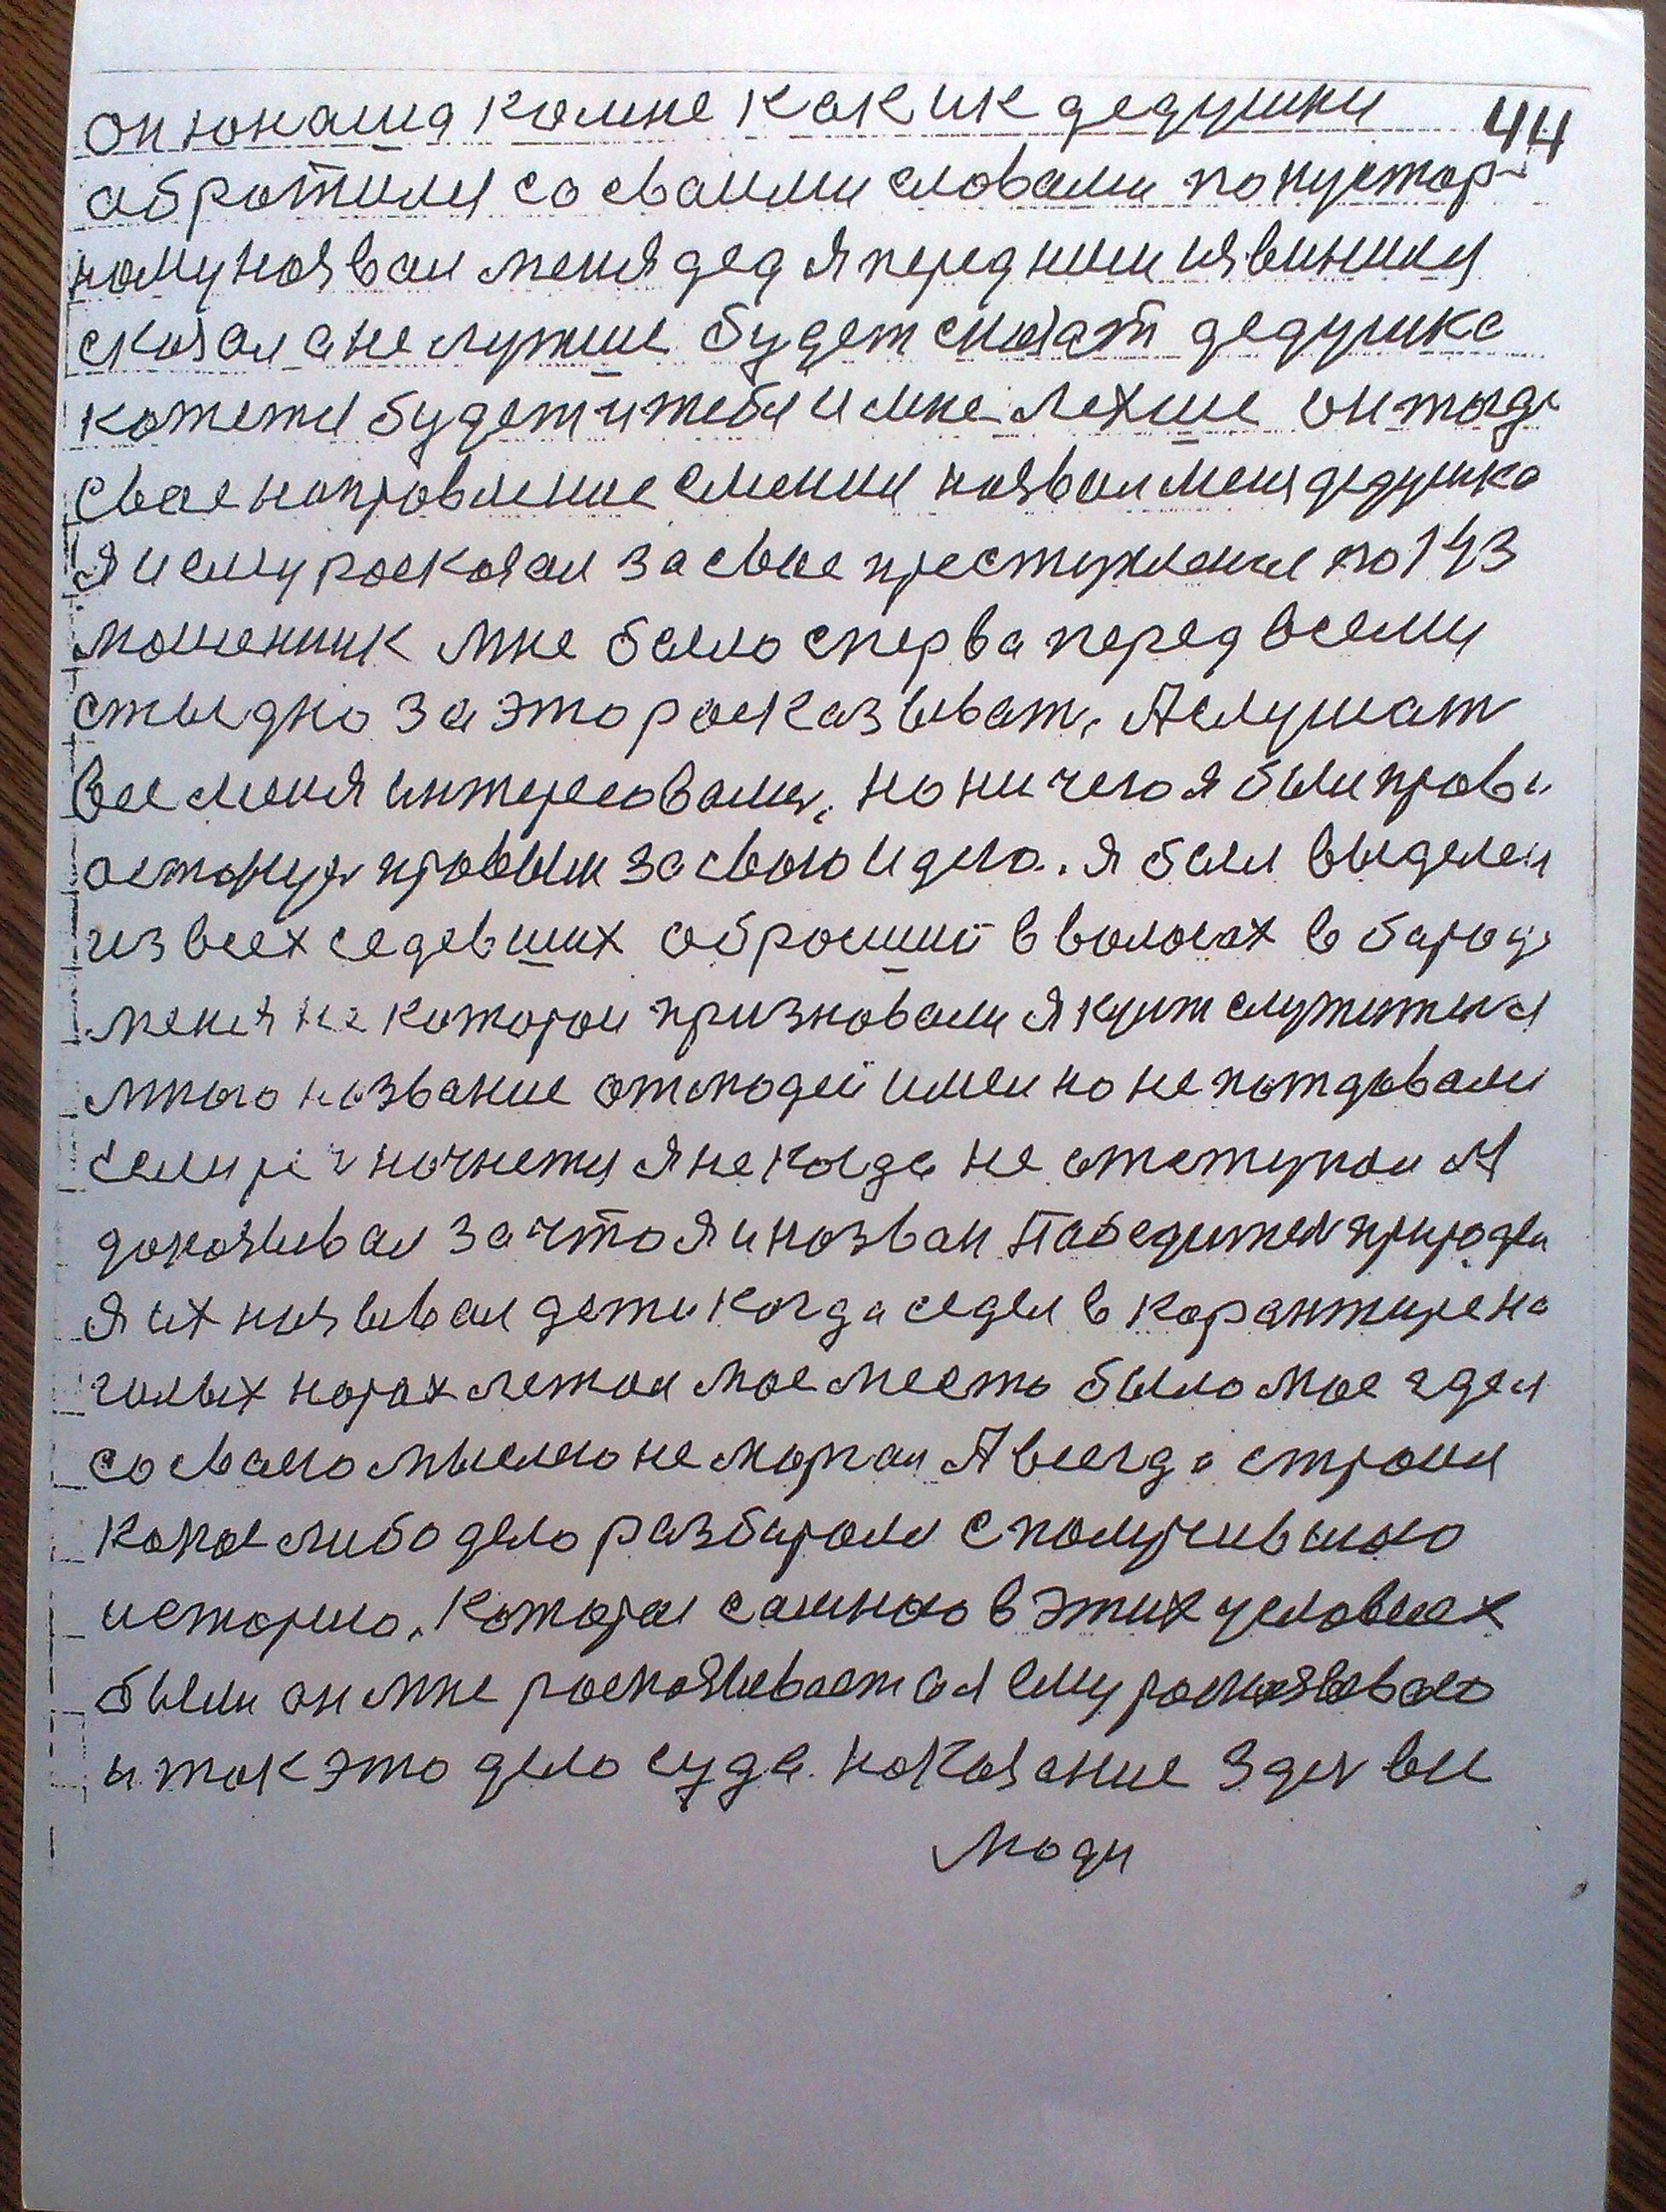 он юнаша комне как ик дедушки 44
обротился со сваими словами попустор
ному назвал меня дед я перед ними извинился
сказал а не лутше будет сказат дедушка
кажетя будет и тебя и мне лехше он тогда
свае направление сменил назвал меня дедушка
я и ему росказал за свае преступления по 143
мошенник мне было сперва перед всеми
стыдно за это росказыват, А слушат
все меня интересовались, но ничего я были прова
остаюсь правым за свою идею. я был выделен
из всех седевших оброший в волосах в бароде
меня не которои призновали якуит служителя
много название от людей имел но не
начнетя я не когда не отступал А
доказывал за что я и назван Победител природы
я их называл дети когда седел в карантире на
голых нарах летал мое место было мое сдел
со сваею мыслею не моргал А всегда строил
какое либо дело разбирался с получившею
историю. Которои самною в этих условиях
были он мне росказывает а я ему росказываю
и так это дело суда наказание здес все
люди